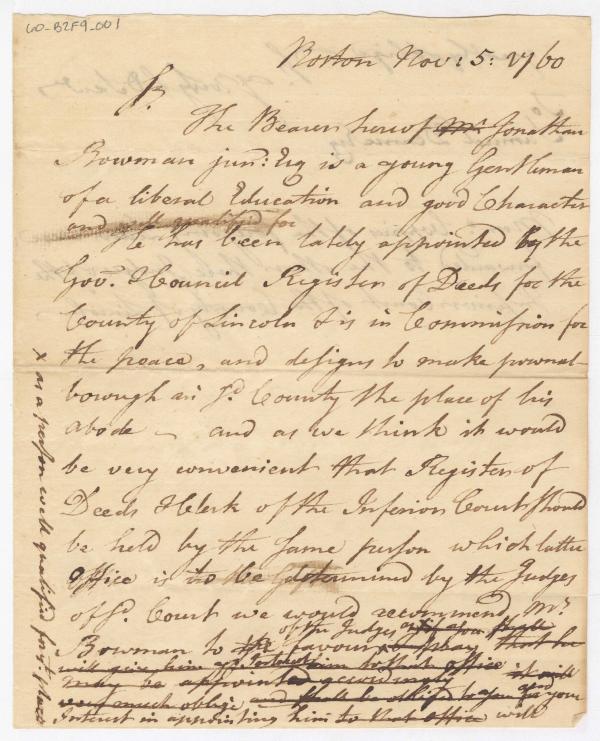 60-B2F9-001
Boston Nov: 5: 1760
Sr
The Bearer hereof Mr Jonathan
Bowman junr: Esq is a young Gentleman
of a liberal Education and good Character
and well qualified for
He has been lately appointed by the
Govr. & Council Register of Deeds for the
County of Lincoln & is in Commission for
the peace, and designs to make pownal-
borough in sd. County the place of his
abode – and as we think it would
be very convenient that Register of
Deeds & Clerk of the Inferior Court should
be held by the same person which latter
office is to be determined by the Judges
of sd. Court we would recommend Mr.
Bowman to the favour of the Judges that he
will give him to that office
may be appointed accordingly it will
very much oblige and shall be oblig'd to you for your
Interest in appointing him to that office will
x as a person well qualified for sd. place